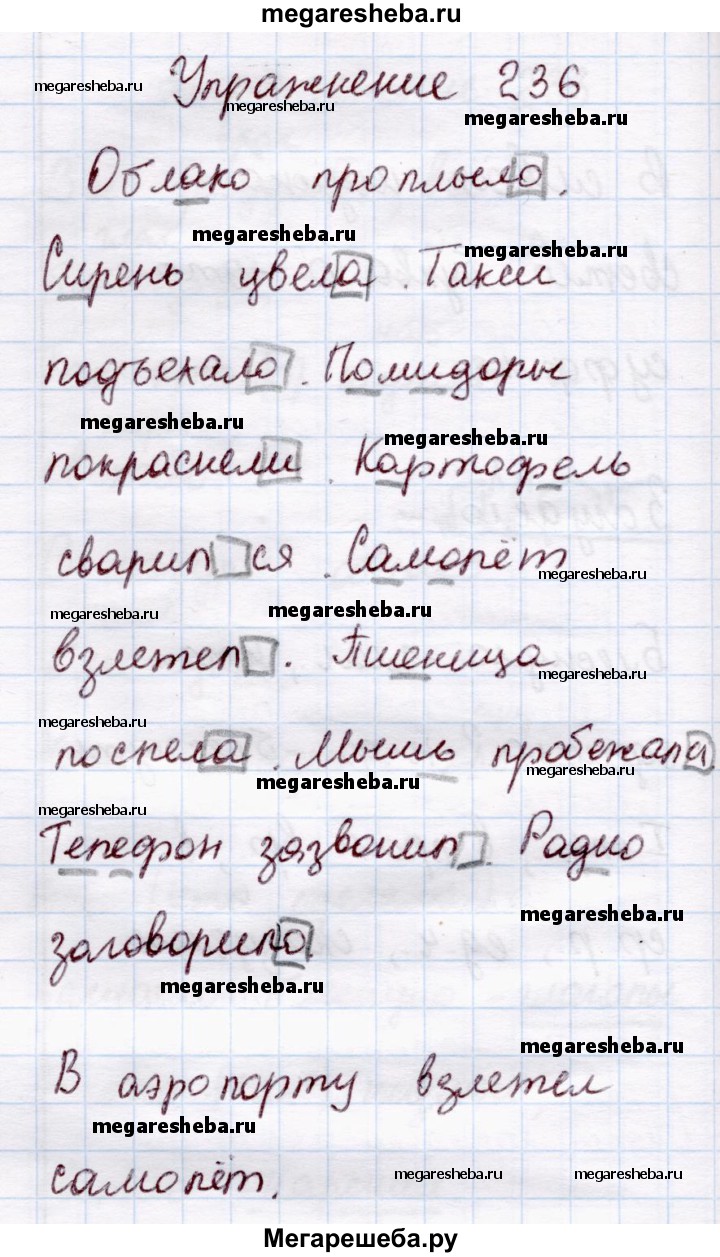 megaresheba.ru
Упражнение 236
megaresheba.ru
megaresheba.ru
megaresheba.ru
Облако проплыло.
megaresheba.ru
megaresheba.ru
Сирень цвела. Такси
подъехало. Помидоры
megaresheba.ru
megaresheba.ru
покраснели. Картофель
сварился. Самолёт
megaresheba.ru
megaresheba.ru
megaresheba.ru
взлетел. Пшеница
megaresheba.ru
megaresheba.ru
поспела. Мышь пробежала.
megaresheba.ru
megaresheba.ru
megaresheba.ru
Телефон зазвонил. Радио
megaresheba.ru
заговорило.
megaresheba.ru
megaresheba.ru
В аэропорту взлетел
megaresheba.ru
самолёт.
megaresheba.ru
megaresheba.ru
Мегарешеба.ру